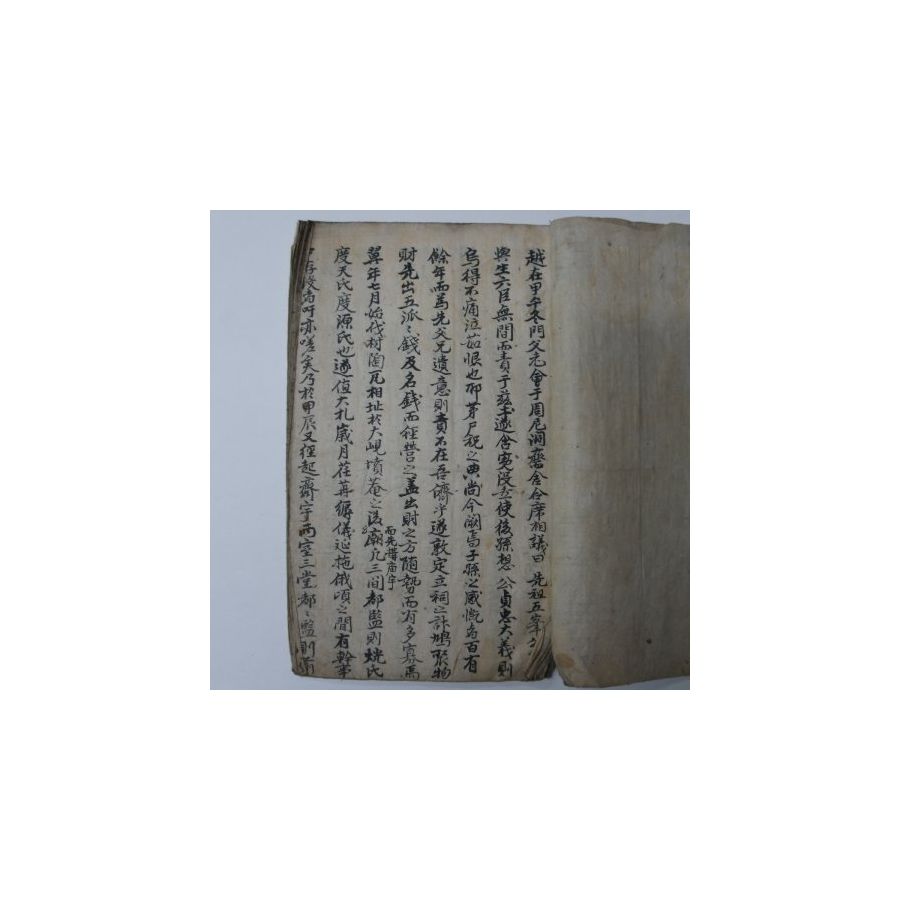 越在甲午冬門父兄會于周尼洞齋舍合席相議曰先祖五峯公
與生六臣無間而責于孫遂含寃沒世使後孫想公貞忠大義則
烏得不痛泣茹恨也耶芽尸祝之典尚今闕焉子孫之感慨爲百有
餘年而爲先父兄遺意則責不在吾儕乎遂敦定立祠之計鳩聚物
財先出五派〻錢及名錢而經營之盖出財之方隨勢而有多寡焉
而先構庙宇
翼年七月始伐材陶瓦相址於大峴墳菴之後廟凡三間都監則
度天氏度源氏也遂值大札歲月荏苒縟儀延拖俄頃之間有幹事
吁亦嗟矣乃於甲辰又經起齋宇兩室三堂都〻監則